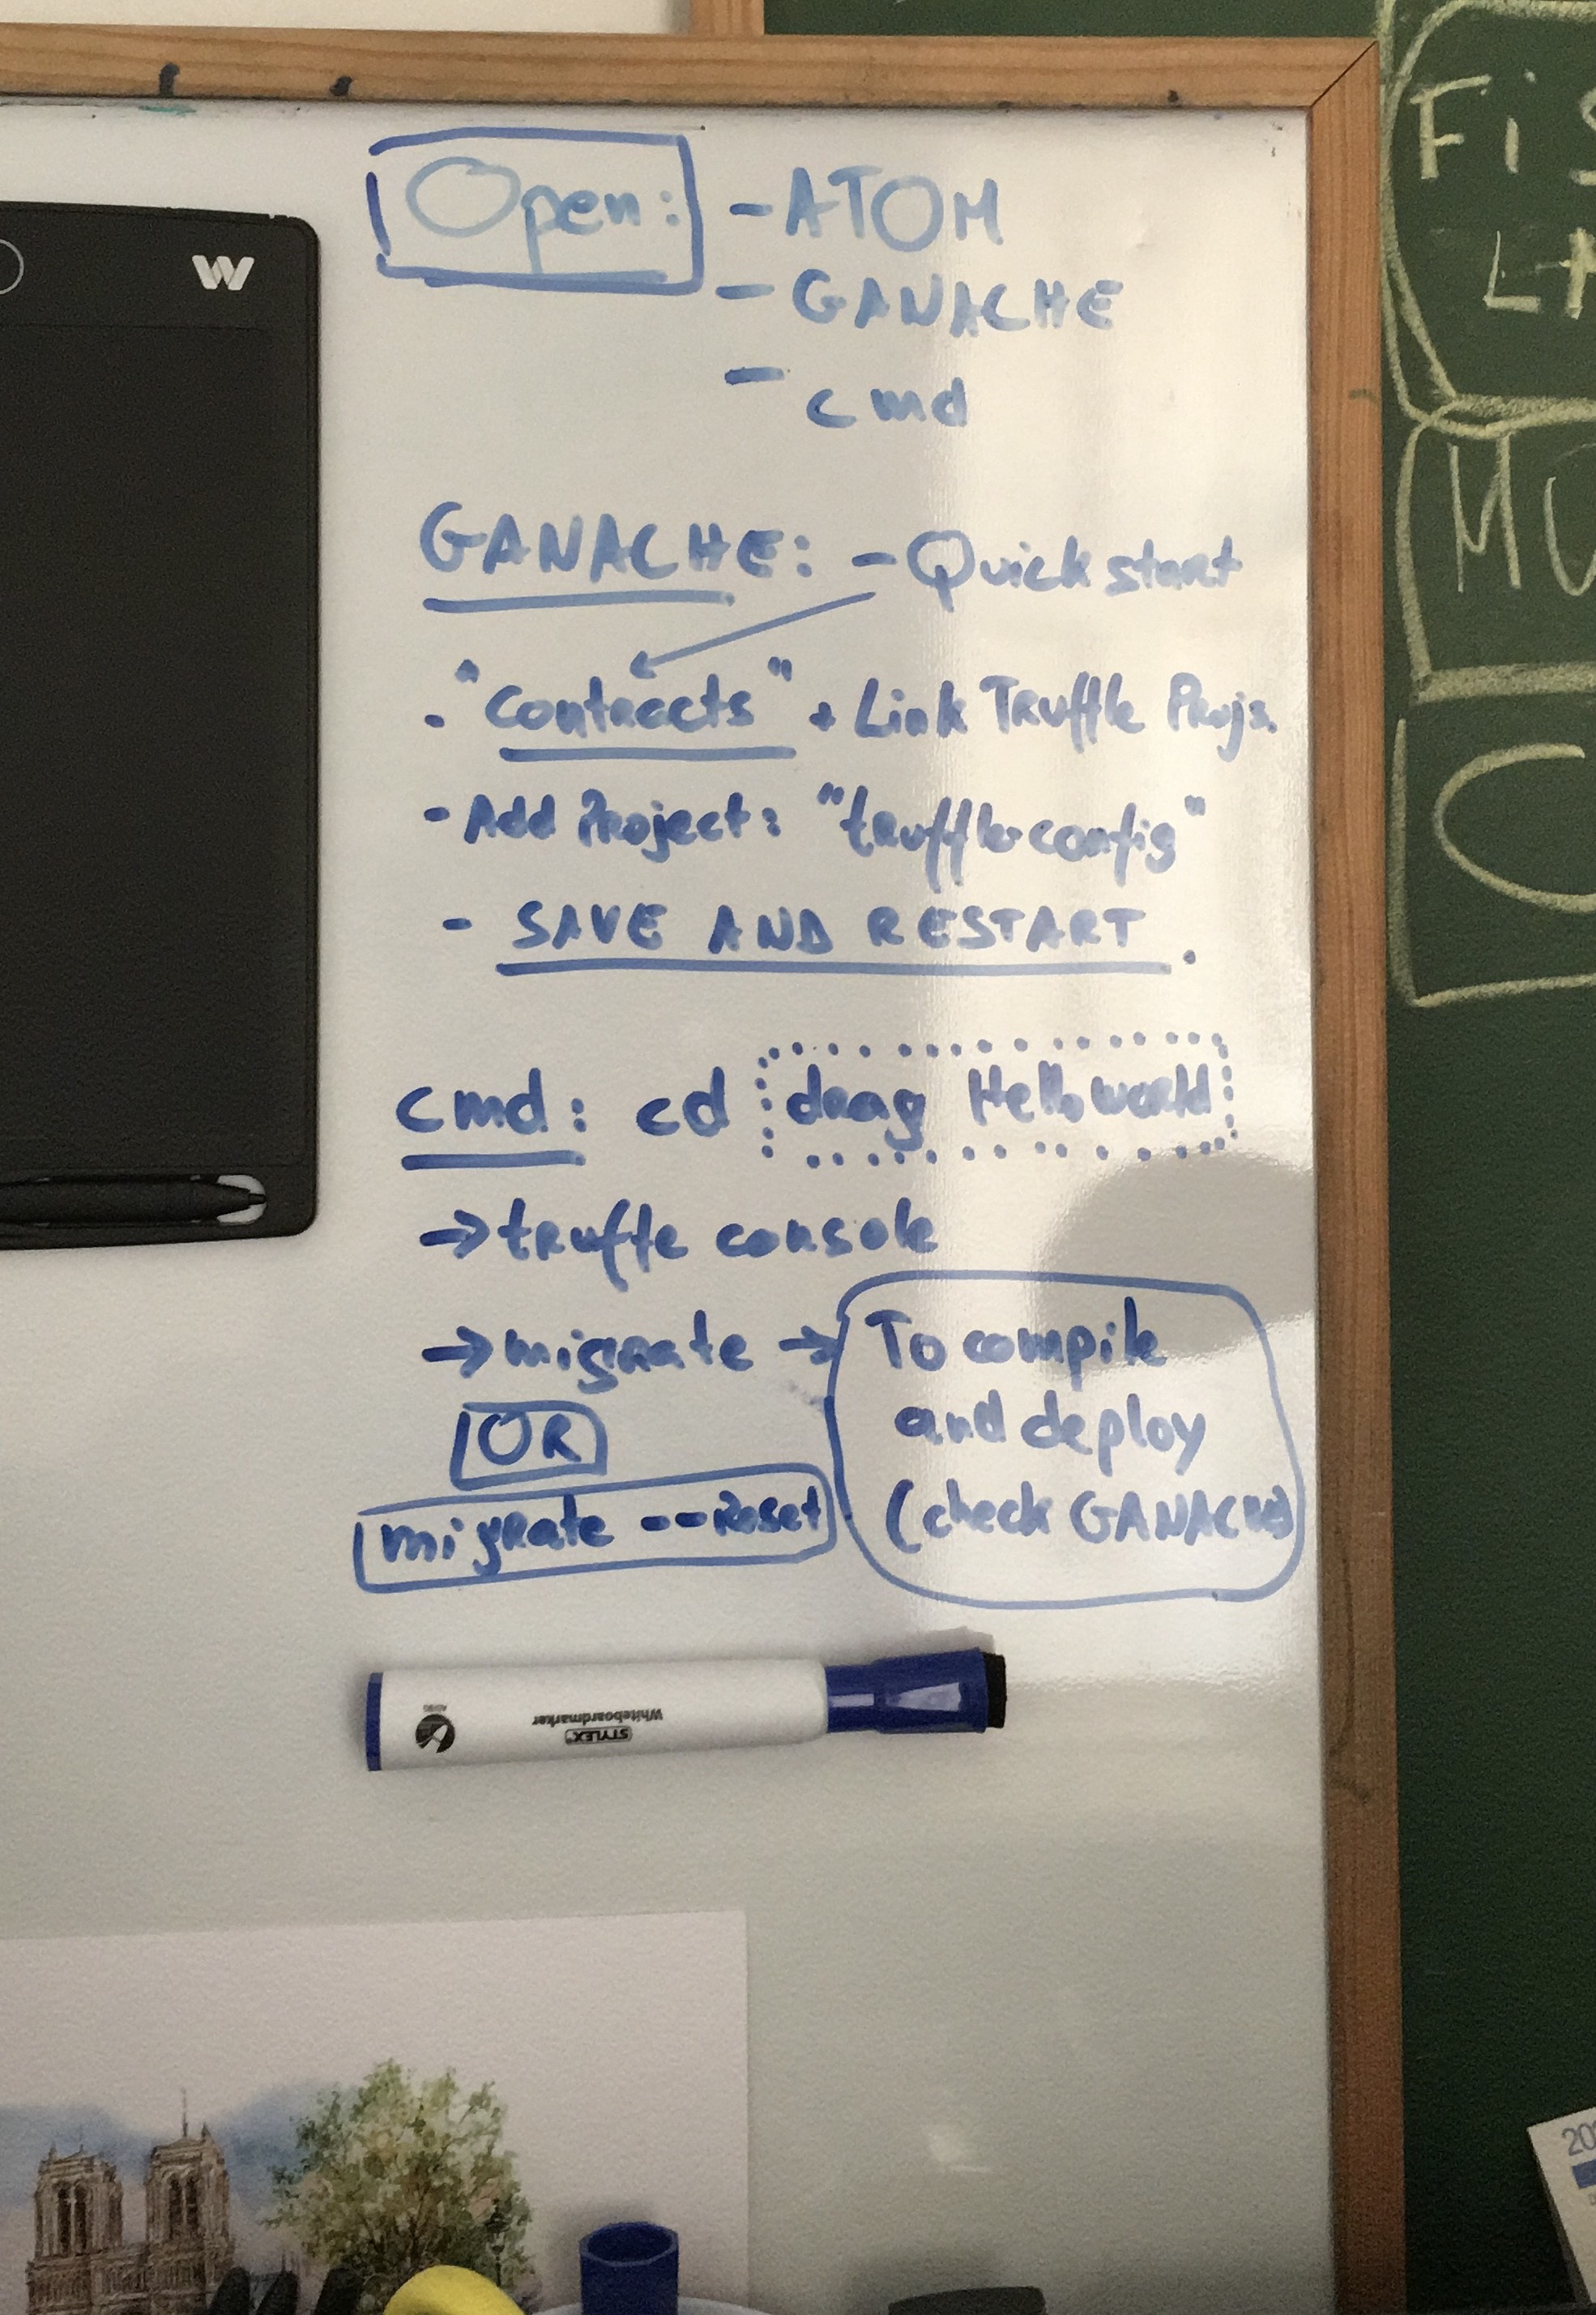 Open: - ATOM
- GANACHE
- cmd
GANACHE: - Quick start
- "Contracts" + Link Truffle Projs.
- Add Project: "truffle-config"
- SAVE AND RESTART.
cmd: cd drag Hello world
→ truffle console
→ migrate → To compile
and deploy
(check GANACHE)
OR
migrate --Reset
W
Whiteboardmarker
STYLEX
Fis
MU
C